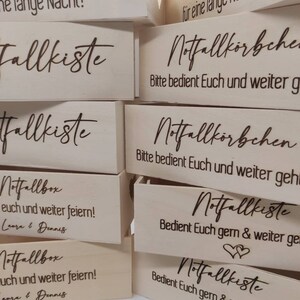 ne lange Nacht!
für eine lange N
tfallkiste
Notfallkörbchen
Bitte bedient Euch und weiter g
tfallkiste
Notfallkörbchen
Bitte bedient Euch und weiter geh
Notfallbox
euch und weiter feiern!
Laura & Dennis
Notfallkiste
Bedient Euch gern & weiter ge
Notfallbox
euch und weiter feiern!
Laura & Dennis
Notfallkiste
Bedient Euch gern & w